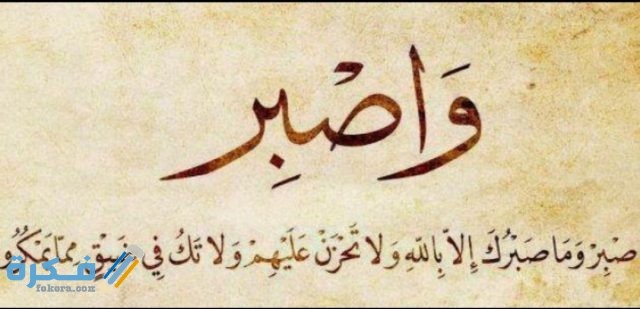 وَاصْبِر
صْبِرْ وَمَا صَبْرُكَ إِلاَّ بِاللّهِ وَلاَ تَحْزَنْ عَلَيْهِمْ وَلاَ تَكُ فِي ضَيْقٍ مِمَّا يَمْكُرُو
فكرة
fekera.com